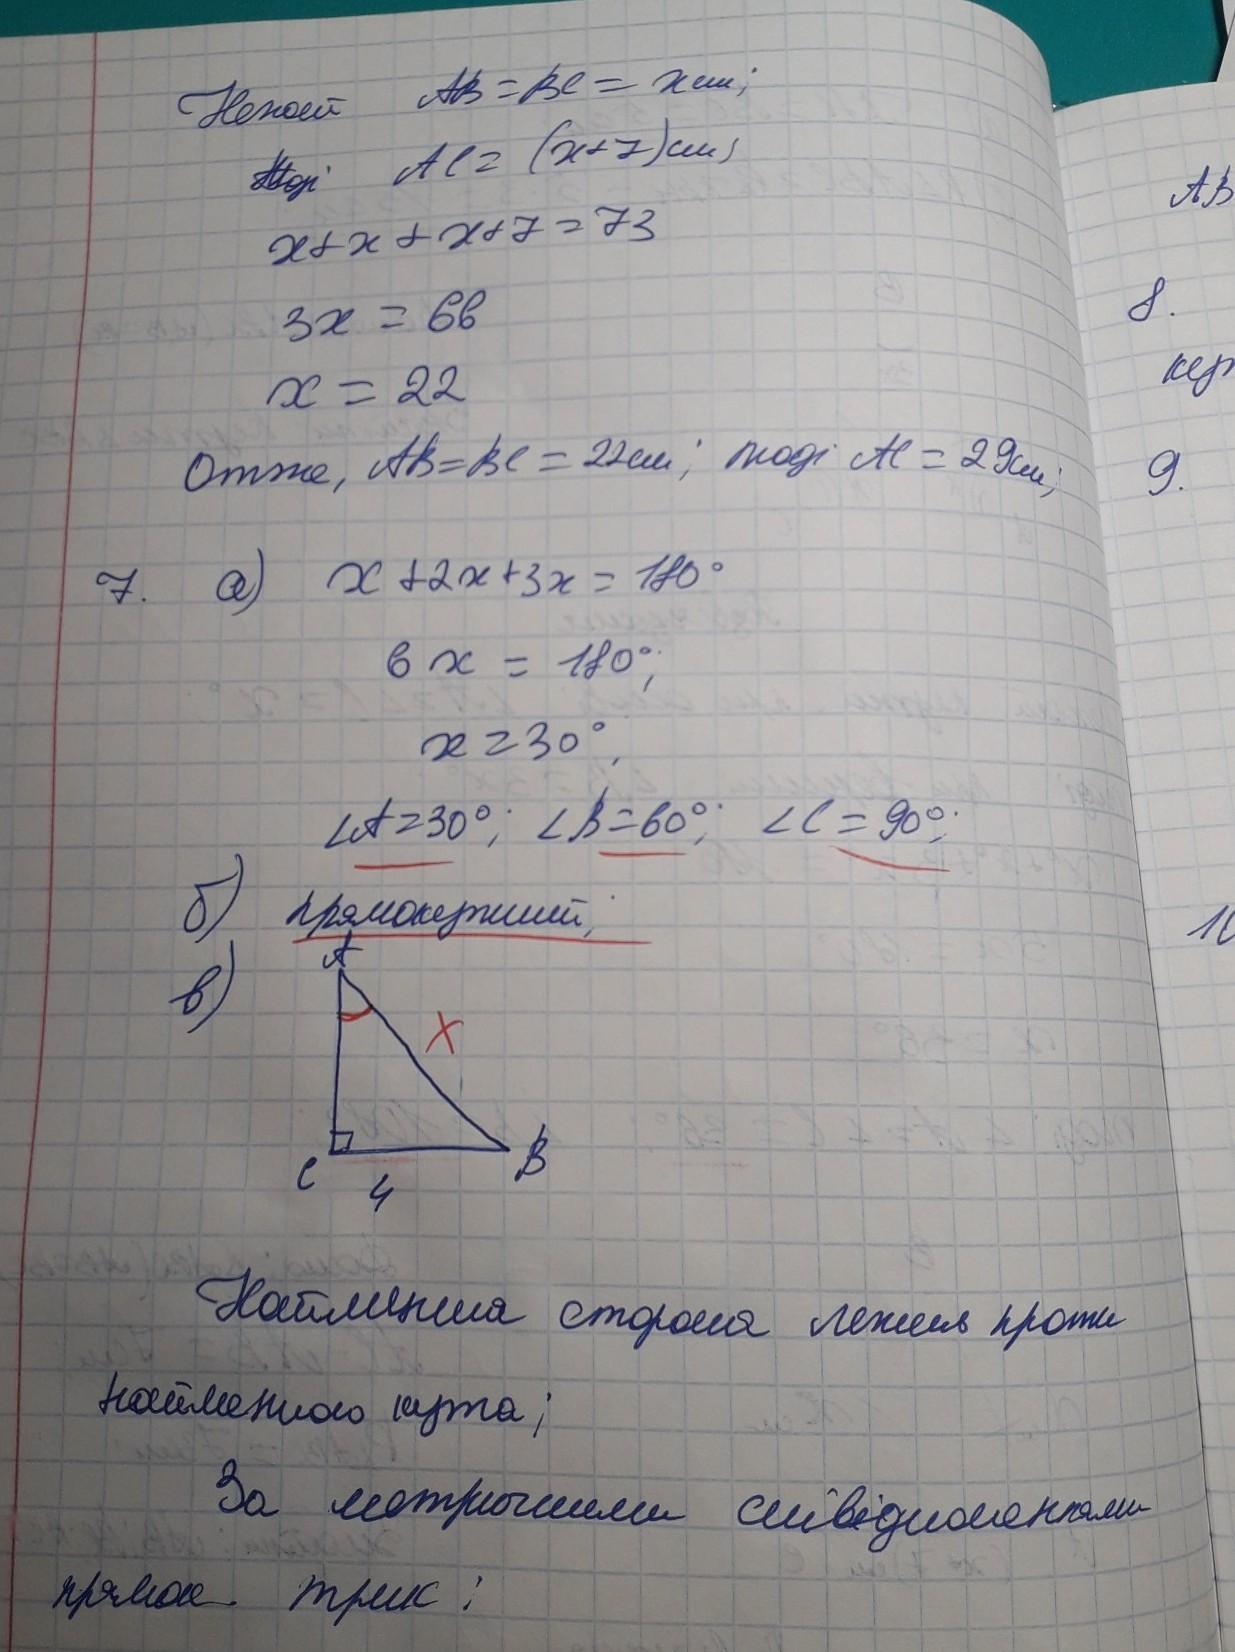 Нехай AB = BC = x см;
Тоді AC = (x+7) см;
x+x+x+7=73
3x = 66
x = 22
Отже, AB=BC=22см; тоді AC = 29см;
7. а) x+2x+3x=180°
6x = 180°;
x=30°;
∠A=30°; ∠B=60°; ∠C=90°;
б) прямокутний;
в) A
x
C B
4
Найменша сторона лежить проти
найменшого кута;
За метричними співвідношеннями
прямок. трик:
AB
8.
кут
9.
10